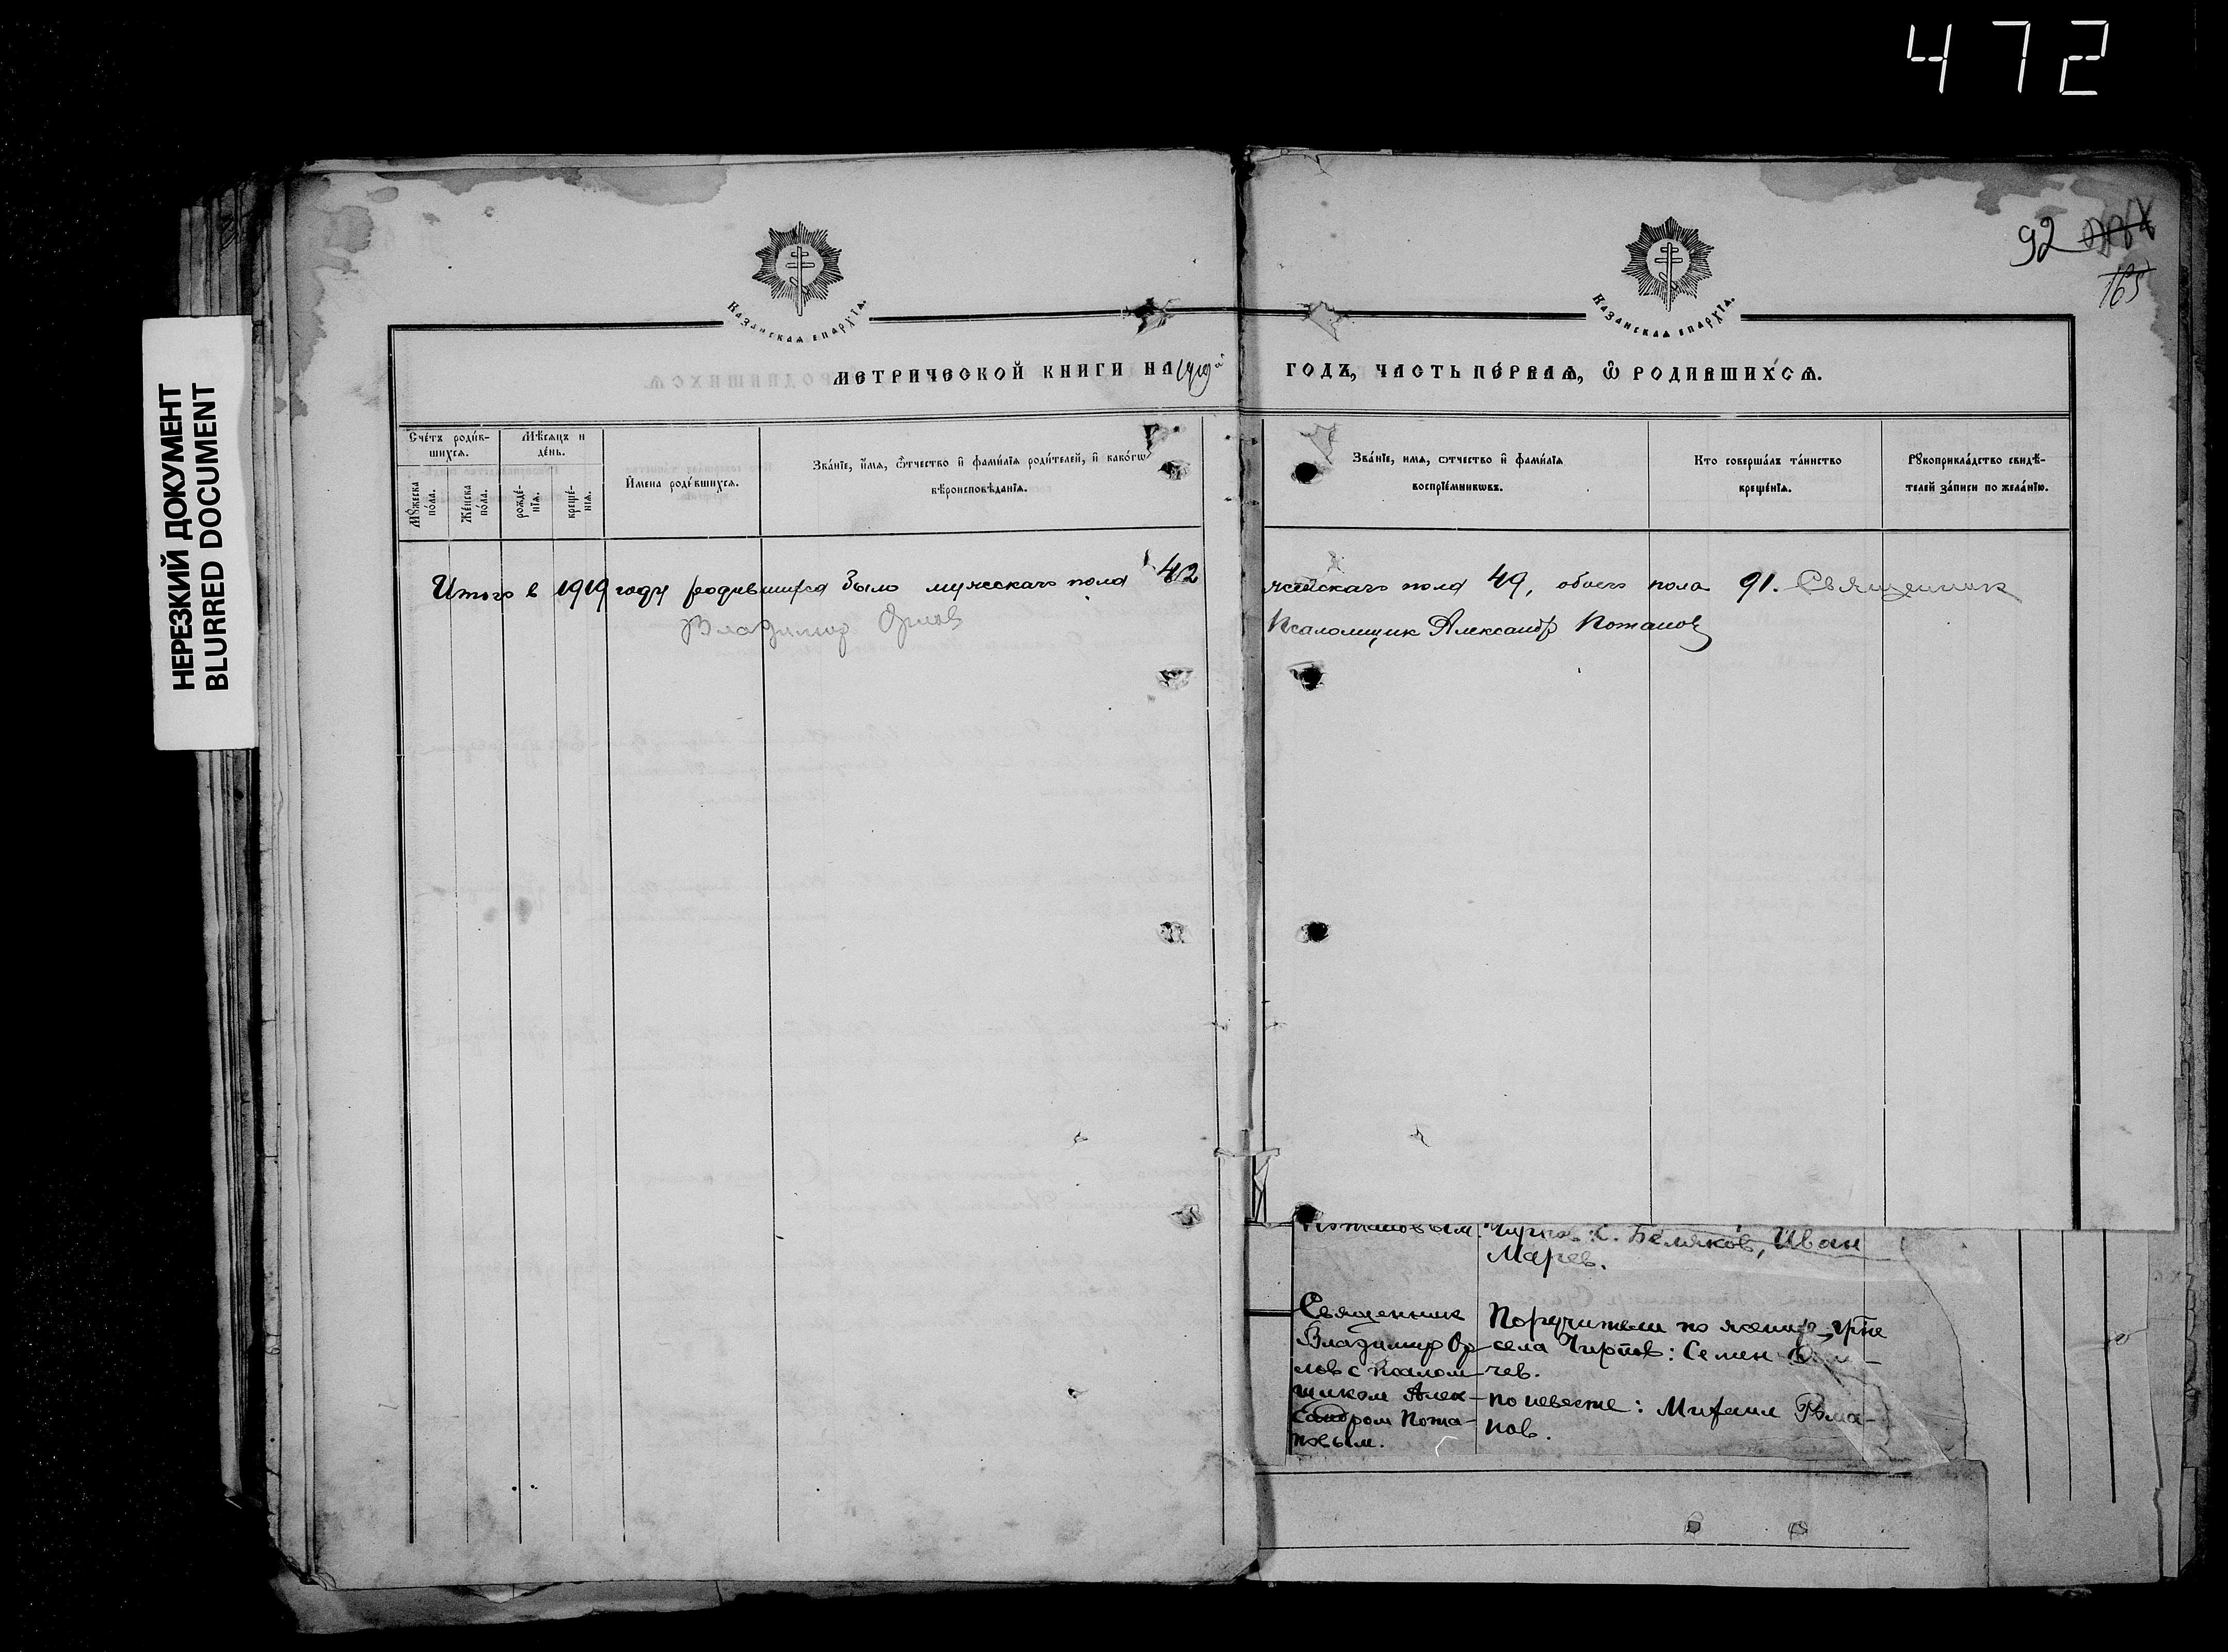 472
92
165
НЕРЕЗКИЙ ДОКУМЕНТ
BLURRED DOCUMENT
КАЗАНСКАѦ ЕПАРХІѦ.
КАЗАНСКАѦ ЕПАРХІѦ.
МЕТРИЧЕСКОЙ КНИГИ НА 1919й ГОДЪ, ЧАСТЬ ПЕ́РВАѦ, Ѿ РОДИВШИХСѦ.
Сче́тъ роди́в-
шихсѧ.
Мѣ́сѧцъ и
де́нь.
Мꙋ́жеска
по́ла.
Же́нска
по́ла.
рожде́-
нїѧ.
креще́-
нїѧ.
И҆мена роди́вшихсѧ.
Зва́нїе, и҆́мѧ, ѻ҆́тчество и҆ фами́лїѧ роди́телей, и҆ како́гѡ
вѣроисповѣ́данїѧ.
Зва́нїе, имѧ, ѻтчество и҆ фами́лїѧ
воспрїе́мникѡвъ.
Кто соверша́лъ та́инство
креще́нїѧ.
Рꙋкоприкла́дство свидѣ́-
телей за́писи по жела́нїю.
Итого в 1919 году родившихся было мужскаго пола 42 женскаго пола 49, обоего пола 91. Священник
Владимир Орлов Псаломщик Александр Потапов
Потаповым.
Беляков, Иван
Марев.
Священник
Владимир Ор
лов с псалом
щиком Алек-
сандром Пота-
повым.
Поручители по жениху гр-не
села Чирпов: Семен
чев.
по невесте: Михаил Рома-
нов.